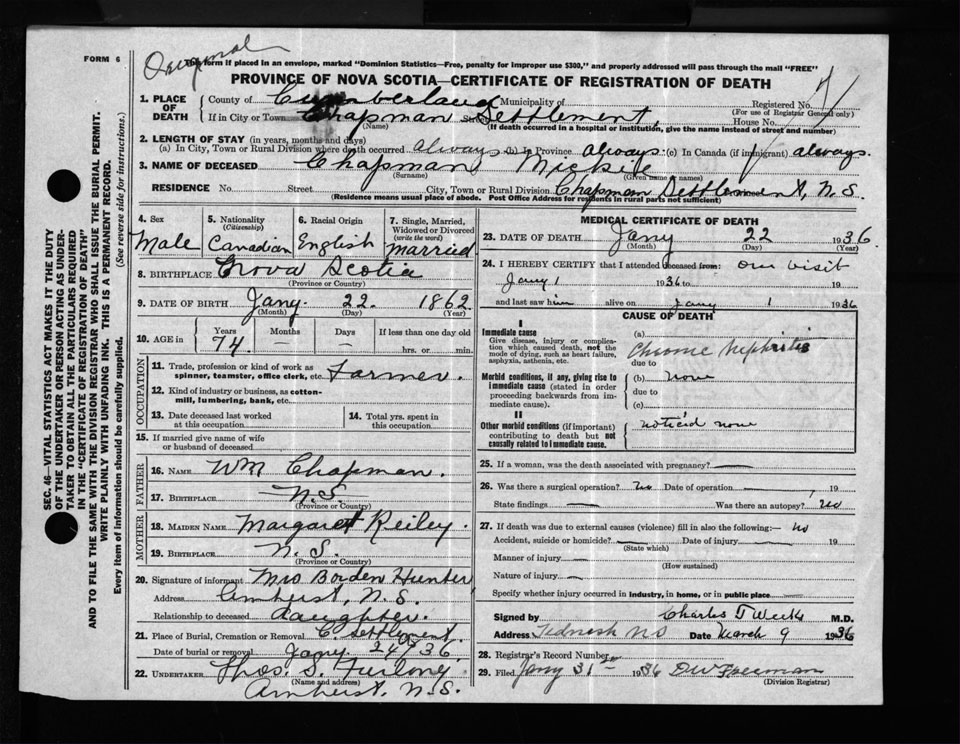 FORM 6
Original
This form if placed in an envelope, marked "Dominion Statistics—Free, penalty for improper use $300," and properly addressed will pass through the mail "FREE"
PROVINCE OF NOVA SCOTIA—CERTIFICATE OF REGISTRATION OF DEATH
SEC. 46—VITAL STATISTICS ACT MAKES IT THE DUTY
OF THE UNDERTAKER OR PERSON ACTING AS UNDER-
TAKER TO OBTAIN ALL THE PARTICULARS REQUIRED
IN THE "CERTIFICATE OF REGISTRATION OF DEATH"
AND TO FILE THE SAME WITH THE DIVISION REGISTRAR WHO SHALL ISSUE THE BURIAL PERMIT.
WRITE PLAINLY WITH UNFADING INK. THIS IS A PERMANENT RECORD.
Every item of information should be carefully supplied. (See reverse side for instructions.)
1. PLACE OF DEATH County of Cumberland Municipality of Registered No.
(For use of Registrar General only)
If in City or Town Chapman Settlement, Street House No.
(Name) (If death occurred in a hospital or institution, give the name instead of street and number)
2. LENGTH OF STAY (in years, months and days)
(a) In City, Town or Rural Division where death occurred always (b) In Province always (c) In Canada (if immigrant) always.
3. NAME OF DECEASED Chapman
(Surname) (Given name or names)
RESIDENCE No. Street City, Town or Rural Division Chapman Settlement, N.S.
(Residence means usual place of abode. Post Office Address for residents in rural parts not sufficient)
4. Sex Male
5. Nationality (Citizenship) Canadian
6. Racial Origin English
7. Single, Married, Widowed or Divorced (write the word) married
8. BIRTHPLACE Nova Scotia
(Province or Country)
9. DATE OF BIRTH Jany. 22. 1862
(Month) (Day) (Year)
10. AGE in Years Months Days If less than one day old
74. — — hrs. or min.
OCCUPATION
11. Trade, profession or kind of work as spinner, teamster, office clerk, etc. Farmer.
12. Kind of industry or business, as cotton-mill, lumbering, bank, etc.
13. Date deceased last worked at this occupation
14. Total yrs. spent in this occupation
15. If married give name of wife or husband of deceased
FATHER
16. NAME Wm Chapman.
17. BIRTHPLACE N.S.
MOTHER
18. MAIDEN NAME Margaret Reiley.
19. BIRTHPLACE N.S.
(Province or Country)
20. Signature of informant Mrs Borden Hunter
Address Amherst, N.S.
Relationship to deceased daughter.
21. Place of Burial, Cremation or Removal C. Settlement.
Date of burial or removal Jany 24/36.
22. UNDERTAKER Thos. S. Furlong.
(Name and address)
Amherst, N.S.
MEDICAL CERTIFICATE OF DEATH
23. DATE OF DEATH Jany 22 1936.
(Month) (Day) (Year)
24. I HEREBY CERTIFY that I attended deceased from: one visit
Jany 1 1936 to 19
and last saw him alive on Jany 1 1936
CAUSE OF DEATH
I
Immediate cause
Give disease, injury, or complication which caused death, not the mode of dying, such as heart failure, asphyxia, asthenia, etc.
(a) Chronic Nephritis
due to
Morbid conditions, if any, giving rise to immediate cause (stated in order proceeding backwards from immediate cause).
(b) none
due to
(c)
II
Other morbid conditions (if important) contributing to death but not causally related to immediate cause.
noticed none
25. If a woman, was the death associated with pregnancy? —
26. Was there a surgical operation? no Date of operation , 19
State findings — Was there an autopsy? no
27. If death was due to external causes (violence) fill in also the following:— no
Accident, suicide or homicide? — Date of injury 19
(State which)
Manner of injury —
(How sustained)
Nature of injury —
Specify whether injury occurred in industry, in home, or in public place
Signed by Charles T Weeks M.D.
Address Date March 9 1936
28. Registrar's Record Number
29. Filed Jany 31st 1936 DW Freeman
(Division Registrar)